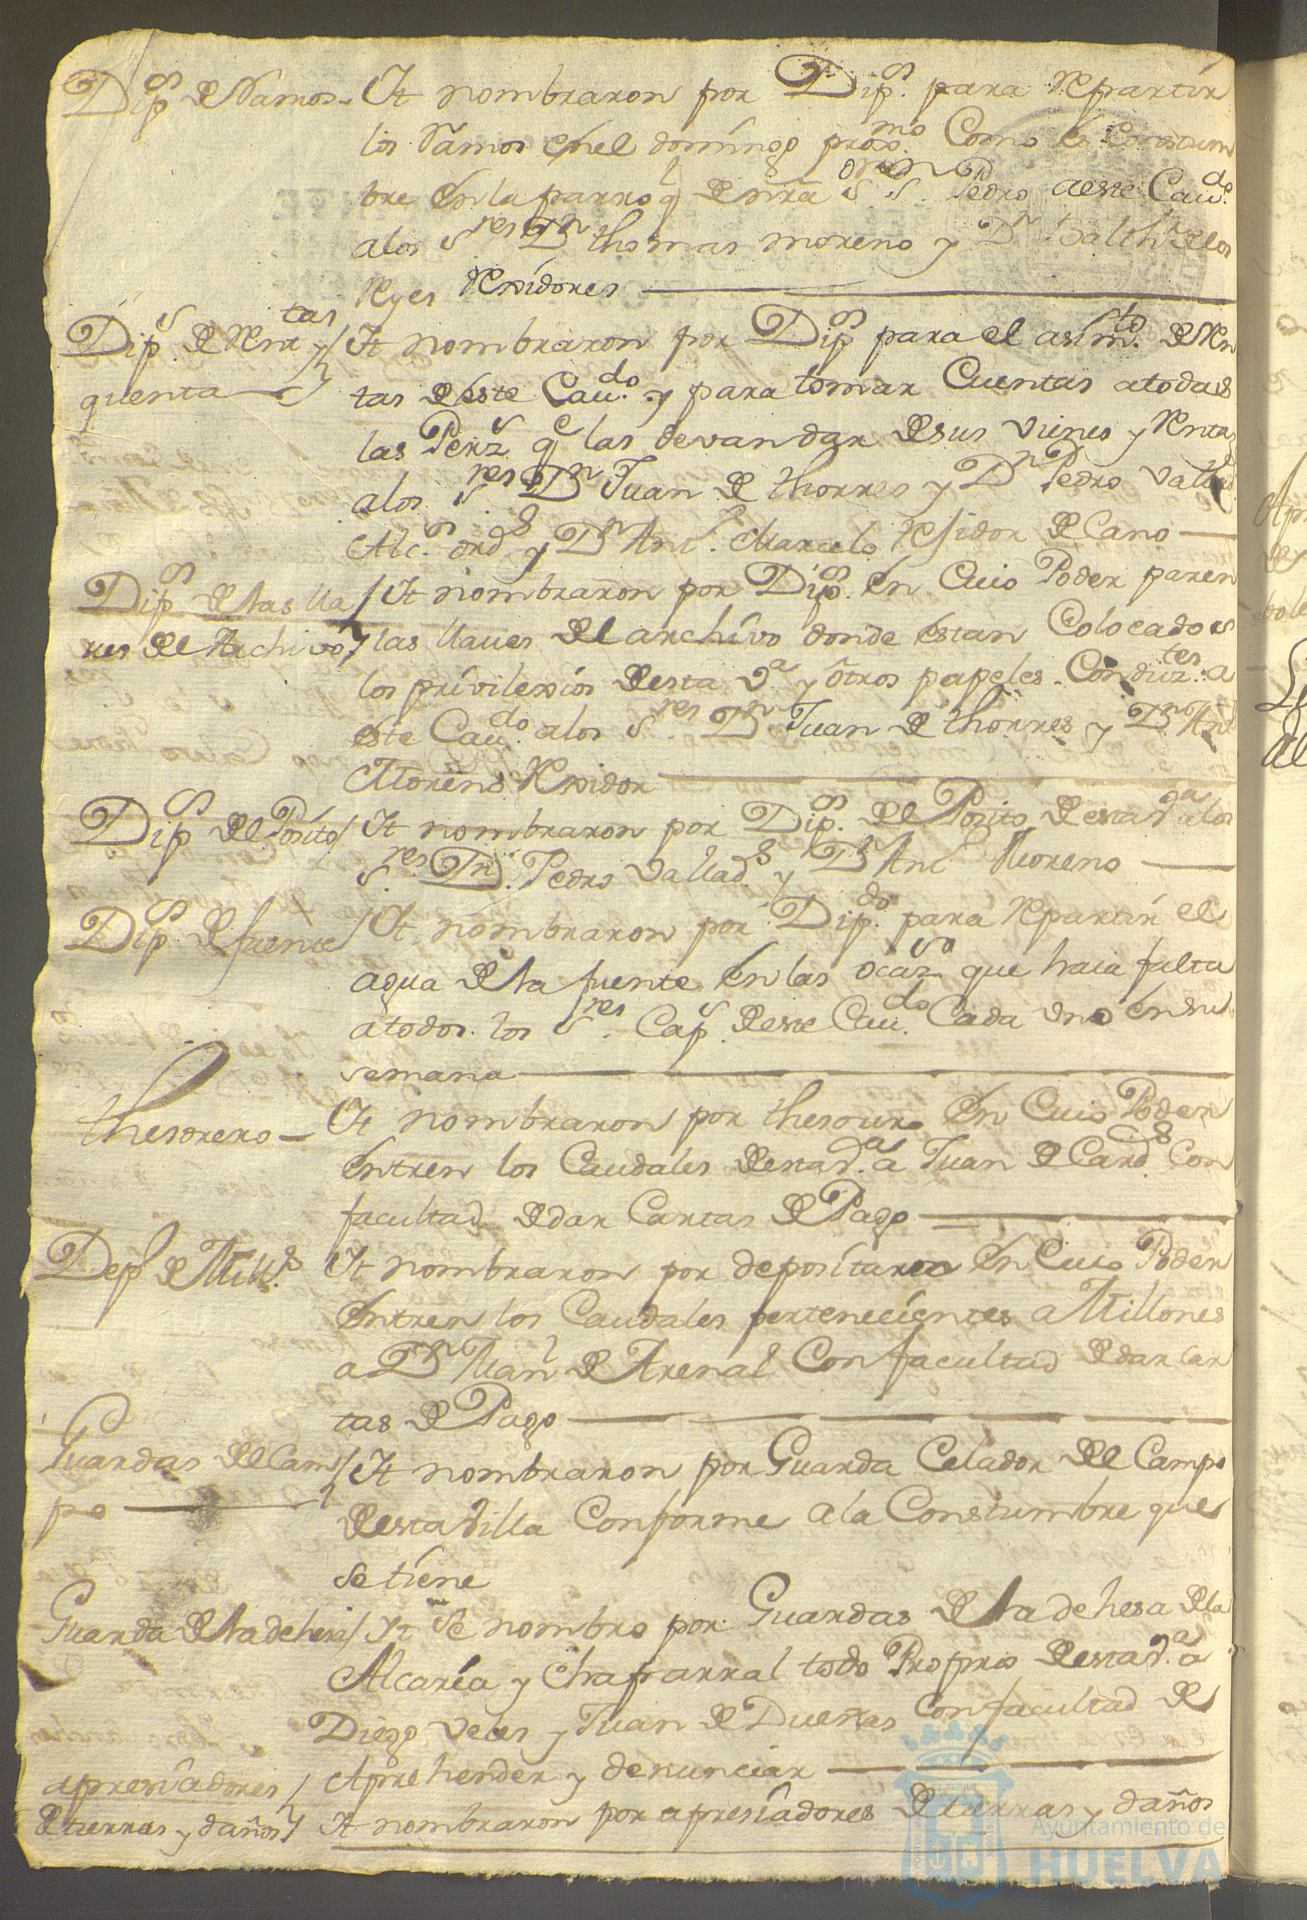 Dip.s de Ramos - It nombraron por Dip.s para Repartir
los Ramos en el domingo prox.mo Como es Constum
bre en la parroq.l de nra S.r S. Pedro a este Cau.do
a los S.res D.n thomas moreno y D.n Balth.r de los
Reyes Rexidores
Dip.s de Rentas y / It nombraron por Dip.s para el asim.to de Ren
quenta tas de este Cau.do y para tomar Cuentas a todas
las Perz.s q.e las devan dar de sus vienes y Rentas
a los S.res D.n Juan de thorres y D.n Pedro Vallad.
Alc.es ord.s y D.n Ant.o Marcelo Rejidor de Cano
Dip.s de las lla / It nombraron por Dip.s en Cuio Poder paren
ves de el Archivo las llaves de el archivo donde estan Colocados
los privilexios de esta V.a y otros papeles Conduz.tes a
este Cau.do a los S.res D.n Juan de thorres y D.n Ant.o
Moreno Rexidor
Dip.s de el Posito / It nombraron por Dip.s de el Posito de esta V.a a los
S.res D.n Pedro Vallad.s y D.n Ant.o Moreno
Dip.s de fuente / It nombraron por Dip.do para Repartir el
agua de la fuente en las ocaz.s que haia falta
a todos los S.res Cap.s de este Cau.do Cada uno en su
semana
thesorero - It nombraron por thesorero en Cuio Poder
entren los Caudales de esta V.a a Juan de Card.s Con
facultad de dar Cartas de Pago
Dep.o de Mill.s It nombraron por depositario en Cuio Poder
entren los Caudales pertenecientes a Millones
a D.n Man.l de Arenal Con facultad de dar Car
tas de Pago
Guardas de el Cam / It nombraron por Guarda Celador de el Campo
po de esta Villa Conforme a la Constumbre que
se tiene
Guarda de la dehesa / It Se nombro por Guardas de la dehesa de la
Alcaria y Chaparral todo Proprio de esta V.a a
Diego Veles y Juan de Dueñas Con facultad de
Aprehender y denunciar
apresiadores / It nombraron por apresiadores de tierras y daños
de tierras y daños
Ayuntamiento de
HUELVA